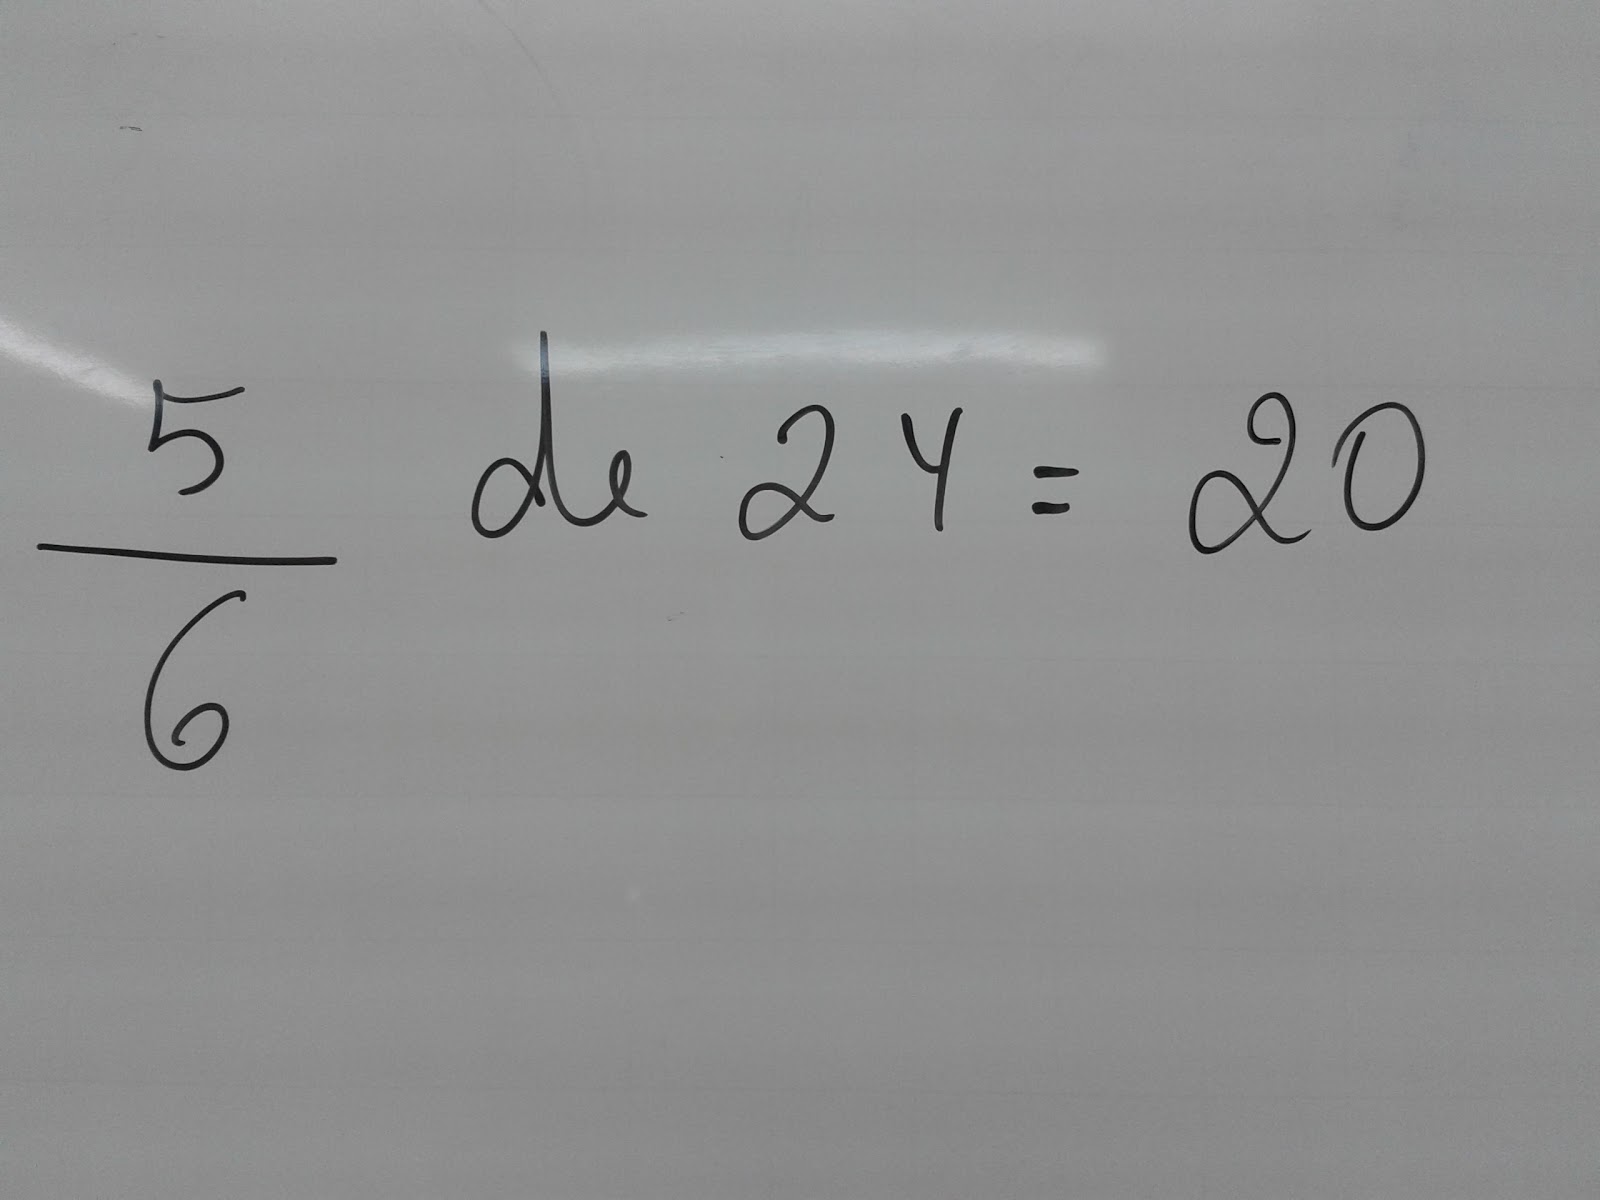 5/6 de 24 = 20